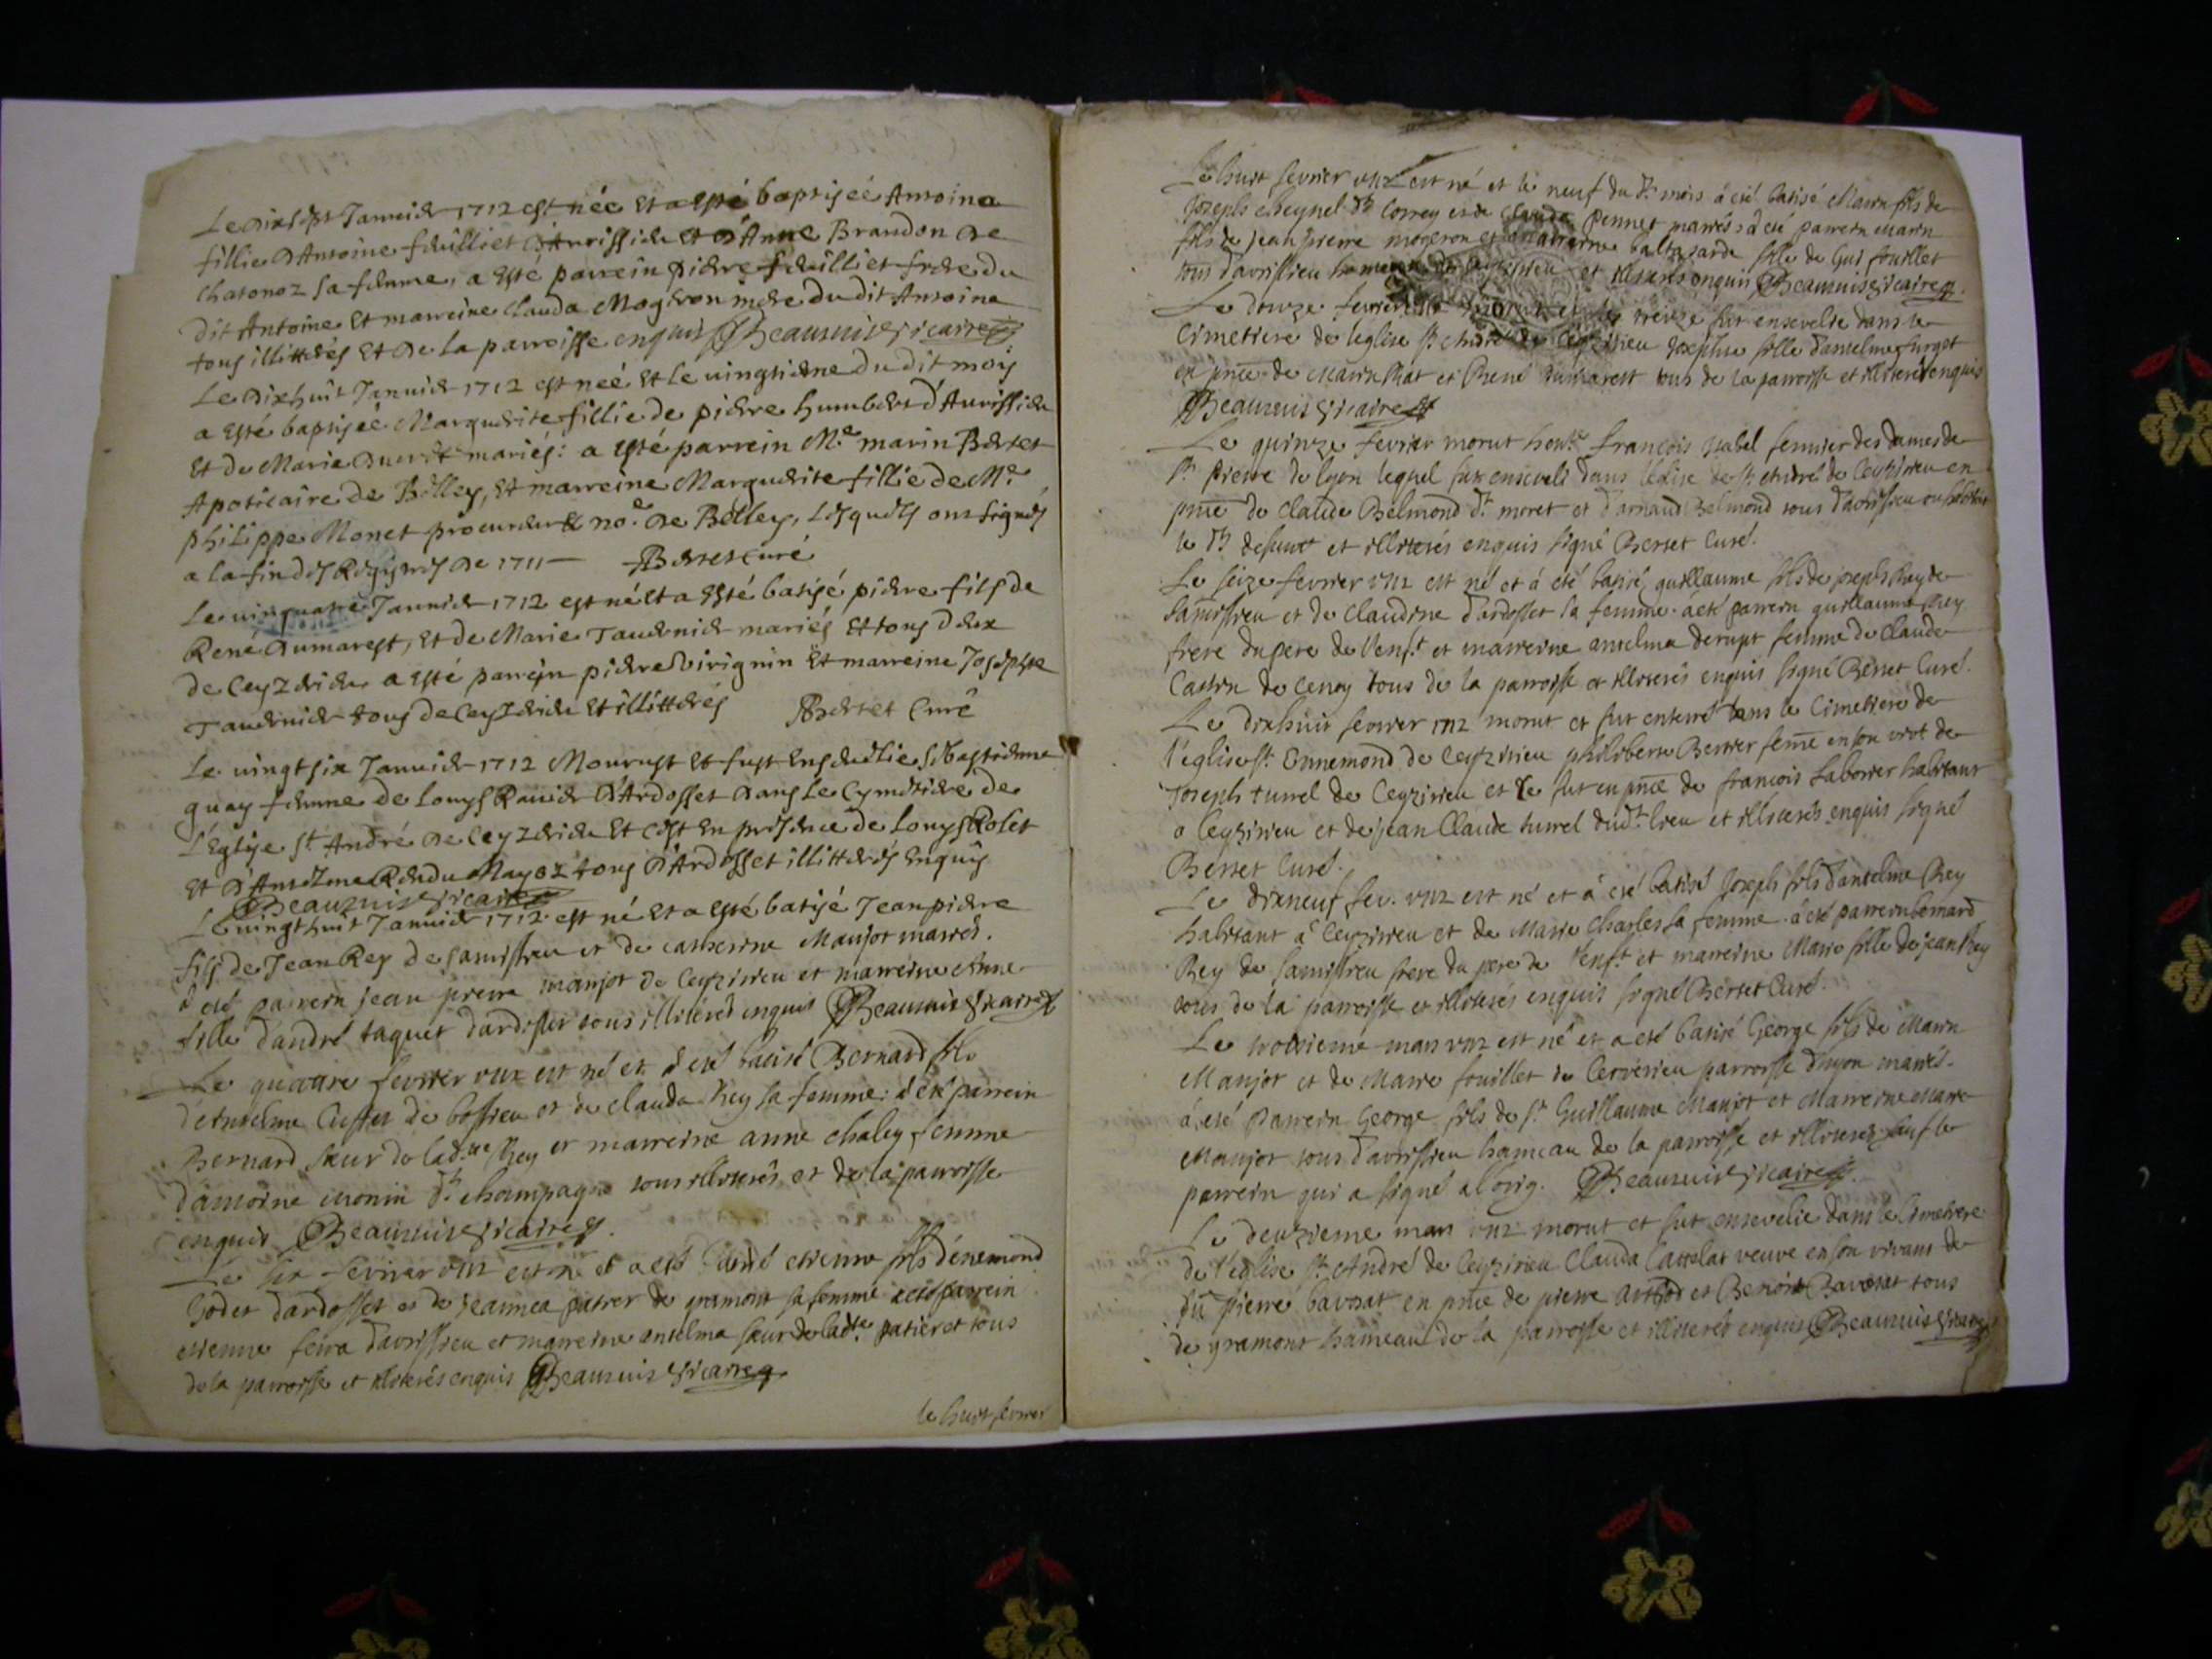 Le dixsept Janvier 1712 est née et a esté baptisée Antoina
fillie d'Antoine feuilliet d'Avrissieu et d'Anne Brandon de
chatonoz sa femme, a esté parrein pierre feuilliet frere du
dit Antoine et marreine Clauda Mogeron mere du dit Antoine
tous illitterés et de la parroisse enquis Beauzuis vicaire
Le dixhuit Janvier 1712 est neé et le vingtieme du dit mois
a esté baptiseé Marguerite fillie de pierre humbert d'Avrissieu
et de Marie mariés: a esté parrein M.e marin Bertet
Apoticaire de Belley, et marreine Marguerite fillie de M.e
philippe Monet procureur & no.e de Belley, lesquels ont signés
a la fin des Registres de 1711 Bertet curé
Le vingquatre Janvier 1712 est né et a esté batisé pierre fils de
René dumarest, et de Marie Tavernier mariés et tous deux
de Ceyzerieu a esté parrein pierre virignin et marreine Josephte
Tavernier tous de Ceyzerieu et illitterés Bertet Curé
Le vingtsix Janvier 1712 Mourust et fust ensevelie Sebastienne
quay femme de Louys Ravier d'Ardosset dans le Cymetiere de
l'Eglise St André de Ceyzerieu et c'est en presence de Louys Rolet
et d'Anselme Rendu Mayoz tous d'Ardosset illitterés enquis
Beauzuis vicaire
Le vingthuit Janvier 1712 est né et a esté batisé Jean pierre
fils de Jean Rey de samissieu et de catherine Manjot mariés.
à eté parrein jean pierre manjot de Ceyzirieu et marreine Anne
fille d'andré taquet dardosset tous illiterés enquis Beauzuis vicaire
Le quattre fevrier 1712 est né et à eté batisé Bernard fils
d'Anselme Cusset de bossieu et de clauda Rey sa femme: à eté parrein
Bernard sœur de ladite Rey et marreine anne chaley femme
d'antoine monin dt champagne tous illiterés et de la parroisse
enquis Beauzuis vicaire.
Le six fevrier 1712 est né et a eté batisé etienne fils d'enemond
Godet dardosset et de jeanmea patier de gramont sa femme a eté parrein
etienne feira d'avrissieu et marreine anselma sœur de ladte patier et tous
de la parroisse et illiterés enquis Beauzuis vicaire
le huit fevrier
Le huit fevrier 1712 est né et le neuf du dt mois à eté batisé Marin fils de
Joseph Meynel dt Correy et de Clauda Pennet mariés à eté parrein Marin
fils de jean pierre mogeron et marreine baltazarde fille de Gui fouillet
tous d'avrissieu hameau de Ceyzirieu et illiterés enquis Beauzuis vicaire.
Le douze fevrier et le treize fut ensevelie dans le
Cimetiere de leglise St André de Ceyzirieu josephte fille d'anselme Furget
en pnce de Marin et René dumarest tous de la parroisse et illiterés enquis
Beauzuis vicaire
Le quinze fevrier morut hon.te François ysabel fermier des dames de
St pierre de lyon lequel fut enseveli dans l'église de St André de Ceyzirieu en
pnce de Claude Belmond dt moret et d'arnaud Belmond tous d'avrissieu ou habitoit
le dt defunt et illiterés enquis signé Bertet Curé.
Le seize fevrier 1712 est né et à été batisé guillaume fils de joseph Rey de
samissieu et de Claudine d'ardosset sa femme. a eté parrein guillaume Rey
frere du pere de l'enft et marreine anselma derupt femme de Claude
Castin de Cenoy tous de la parroisse et illiterés enquis signé Bertet Curé.
Le dixhuit fevrier 1712 morut et fut enterré dans le Cimetiere de
l'eglise St Ennemond de Ceyzirieu philiberte Bertier feme en son vivt de
Joseph turrel de Ceyzirieu et ce fut en pnce de francois Laborier habitant
a Ceyzirieu et de jean Claude turrel dudt lieu et illiterés enquis signé
Bertet Curé.
Le dixneuf fev. 1712 est né et à eté batisé Joseph fils d'anselme Rey
habitant à Ceyzirieu et de Marie Charles sa femme. à eté parrein bernard
Rey de samissieu frere du pere de l'enft et marreine Marie fille de jean Rey
tous de la parroisse et illiterés enquis signé Bertet Curé.
Le troisieme mars 1712 est né et a eté batisé George fils de Marin
Manjot et de Marie fouillet de Cerverieu parroisse d'uyon mariés.
à eté Parrein George fils de Sr Guillaume Manjot et Marreine Marie
Manjot tous d'avrissieu hameau de la parroisse et illiterés sauf le
parrein qui a signé a l'orig. Beauzuis vicaire.
Le deuzieme mars 1712 morut et fut ensevelie dans le Cimetiere
de l'église St André de Ceyzirieu Clauda Cattelat veuve en son vivant de
du pierre bavozat en pnce de pierre et Benoist Bavozat tous
de gramont hameau de la parroisse et illiterés enquis Beauzuis vicaire